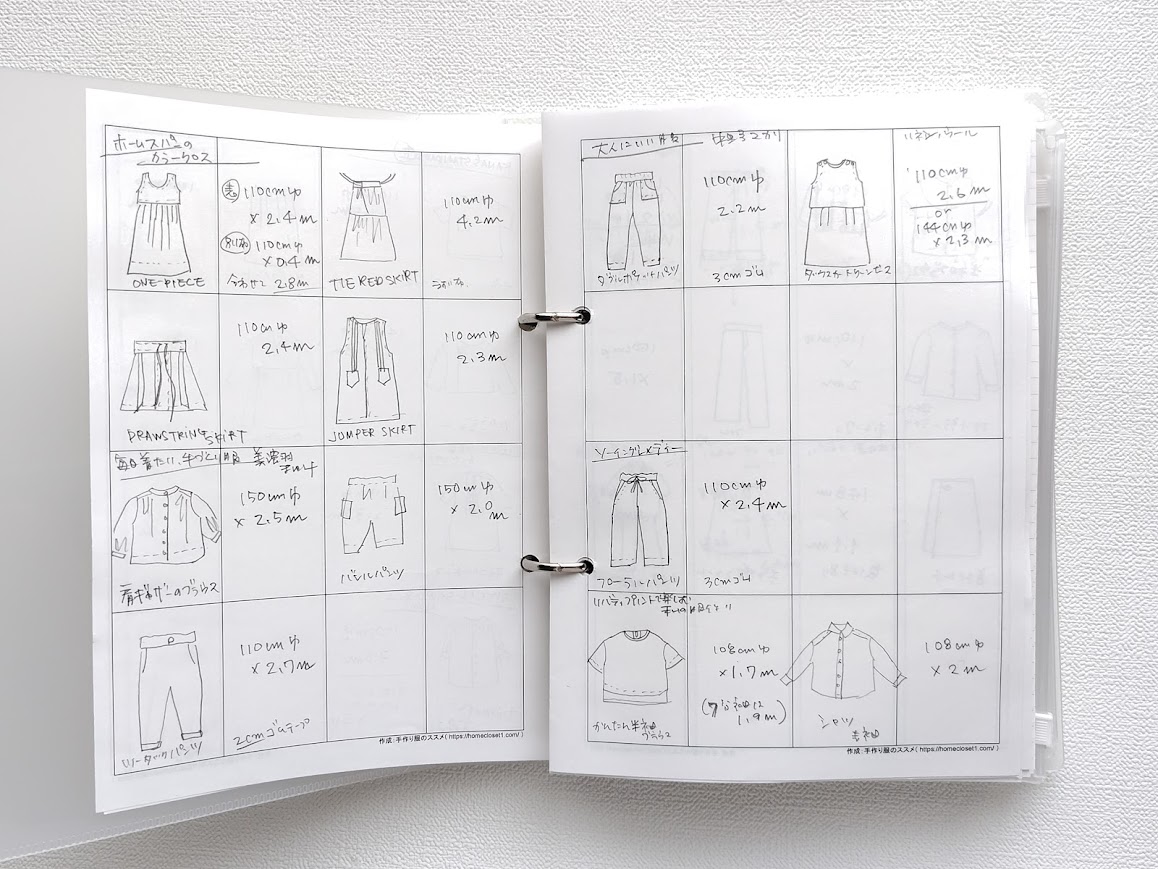 ホームスパンの
カラークロス
表 110cm巾
× 2.4m
別布 110cm巾
× 0.4m
合わせて 2.8m
ONE-PIECE
110cm巾
4.2m
TIERED SKIRT
110cm巾
2.4m
DRAWSTRING SKIRT
110cm巾
2.3m
JUMPER SKIRT
毎日着たい、手づくり服 美濃羽
まゆみ
150cm巾
× 2.5m
肩ギャザーのブラウス
150cm巾
× 2.0m
バルーンパンツ
110cm巾
× 2.7m
2cmゴムテープ
ツータックパンツ
作成:手作り服のススメ( https://homecloset1.com/ )
大人にいい服
110cm巾
2.2m
3cmゴム
ダブルポケットパンツ
リネンウール
110cm巾
2.6m
or
144cm巾
× 2.3m
ソーイングレメディー
110cm巾
× 2.4m
3cmゴム
リバティプリントで楽しむ
108cm巾
×1.7m
(7分袖は
1.9m)
かんたん半袖
ブラウス
108cm巾
× 2m
シャツ
長袖
作成:手作り服のススメ( https://homecloset1.com/ )